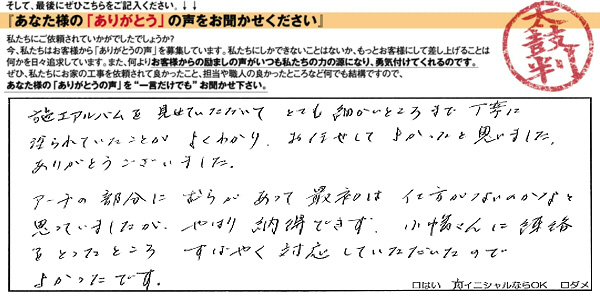 そして、最後にぜひこちらをご記入ください。↓↓
『あなた様の「ありがとう」の声をお聞かせください』
私たちにご依頼されていかがでしたでしょうか?
今、私たちはお客様から「ありがとうの声」を募集しています。私たちにしかできないことはないか、もっとお客様にして差し上げることは
何かを日々追求しています。また、何よりお客様からの励ましの声がいつも私たちの力の源になり、勇気付けてくれるのです。
ぜひ、私たちにお家の工事を依頼されて良かったこと、担当や職人の良かったところなど何でも結構ですので、
あなた様の「ありがとうの声」を“一言だけでも”お聞かせ下さい。
太鼓判
施工アルバムを見せていただいてとても細かいところまで丁寧に
塗られていたことがよくわかり、お任せしてよかったと思いました。
ありがとうございました。
アーチの部分にむらがあって最初は仕方がないのかなと
思っていましたが、やはり納得できず、小幡さんに連絡
をとったところすばやく対応していただいたので
よかったです。
口はい イニシャルならOK 口ダメ